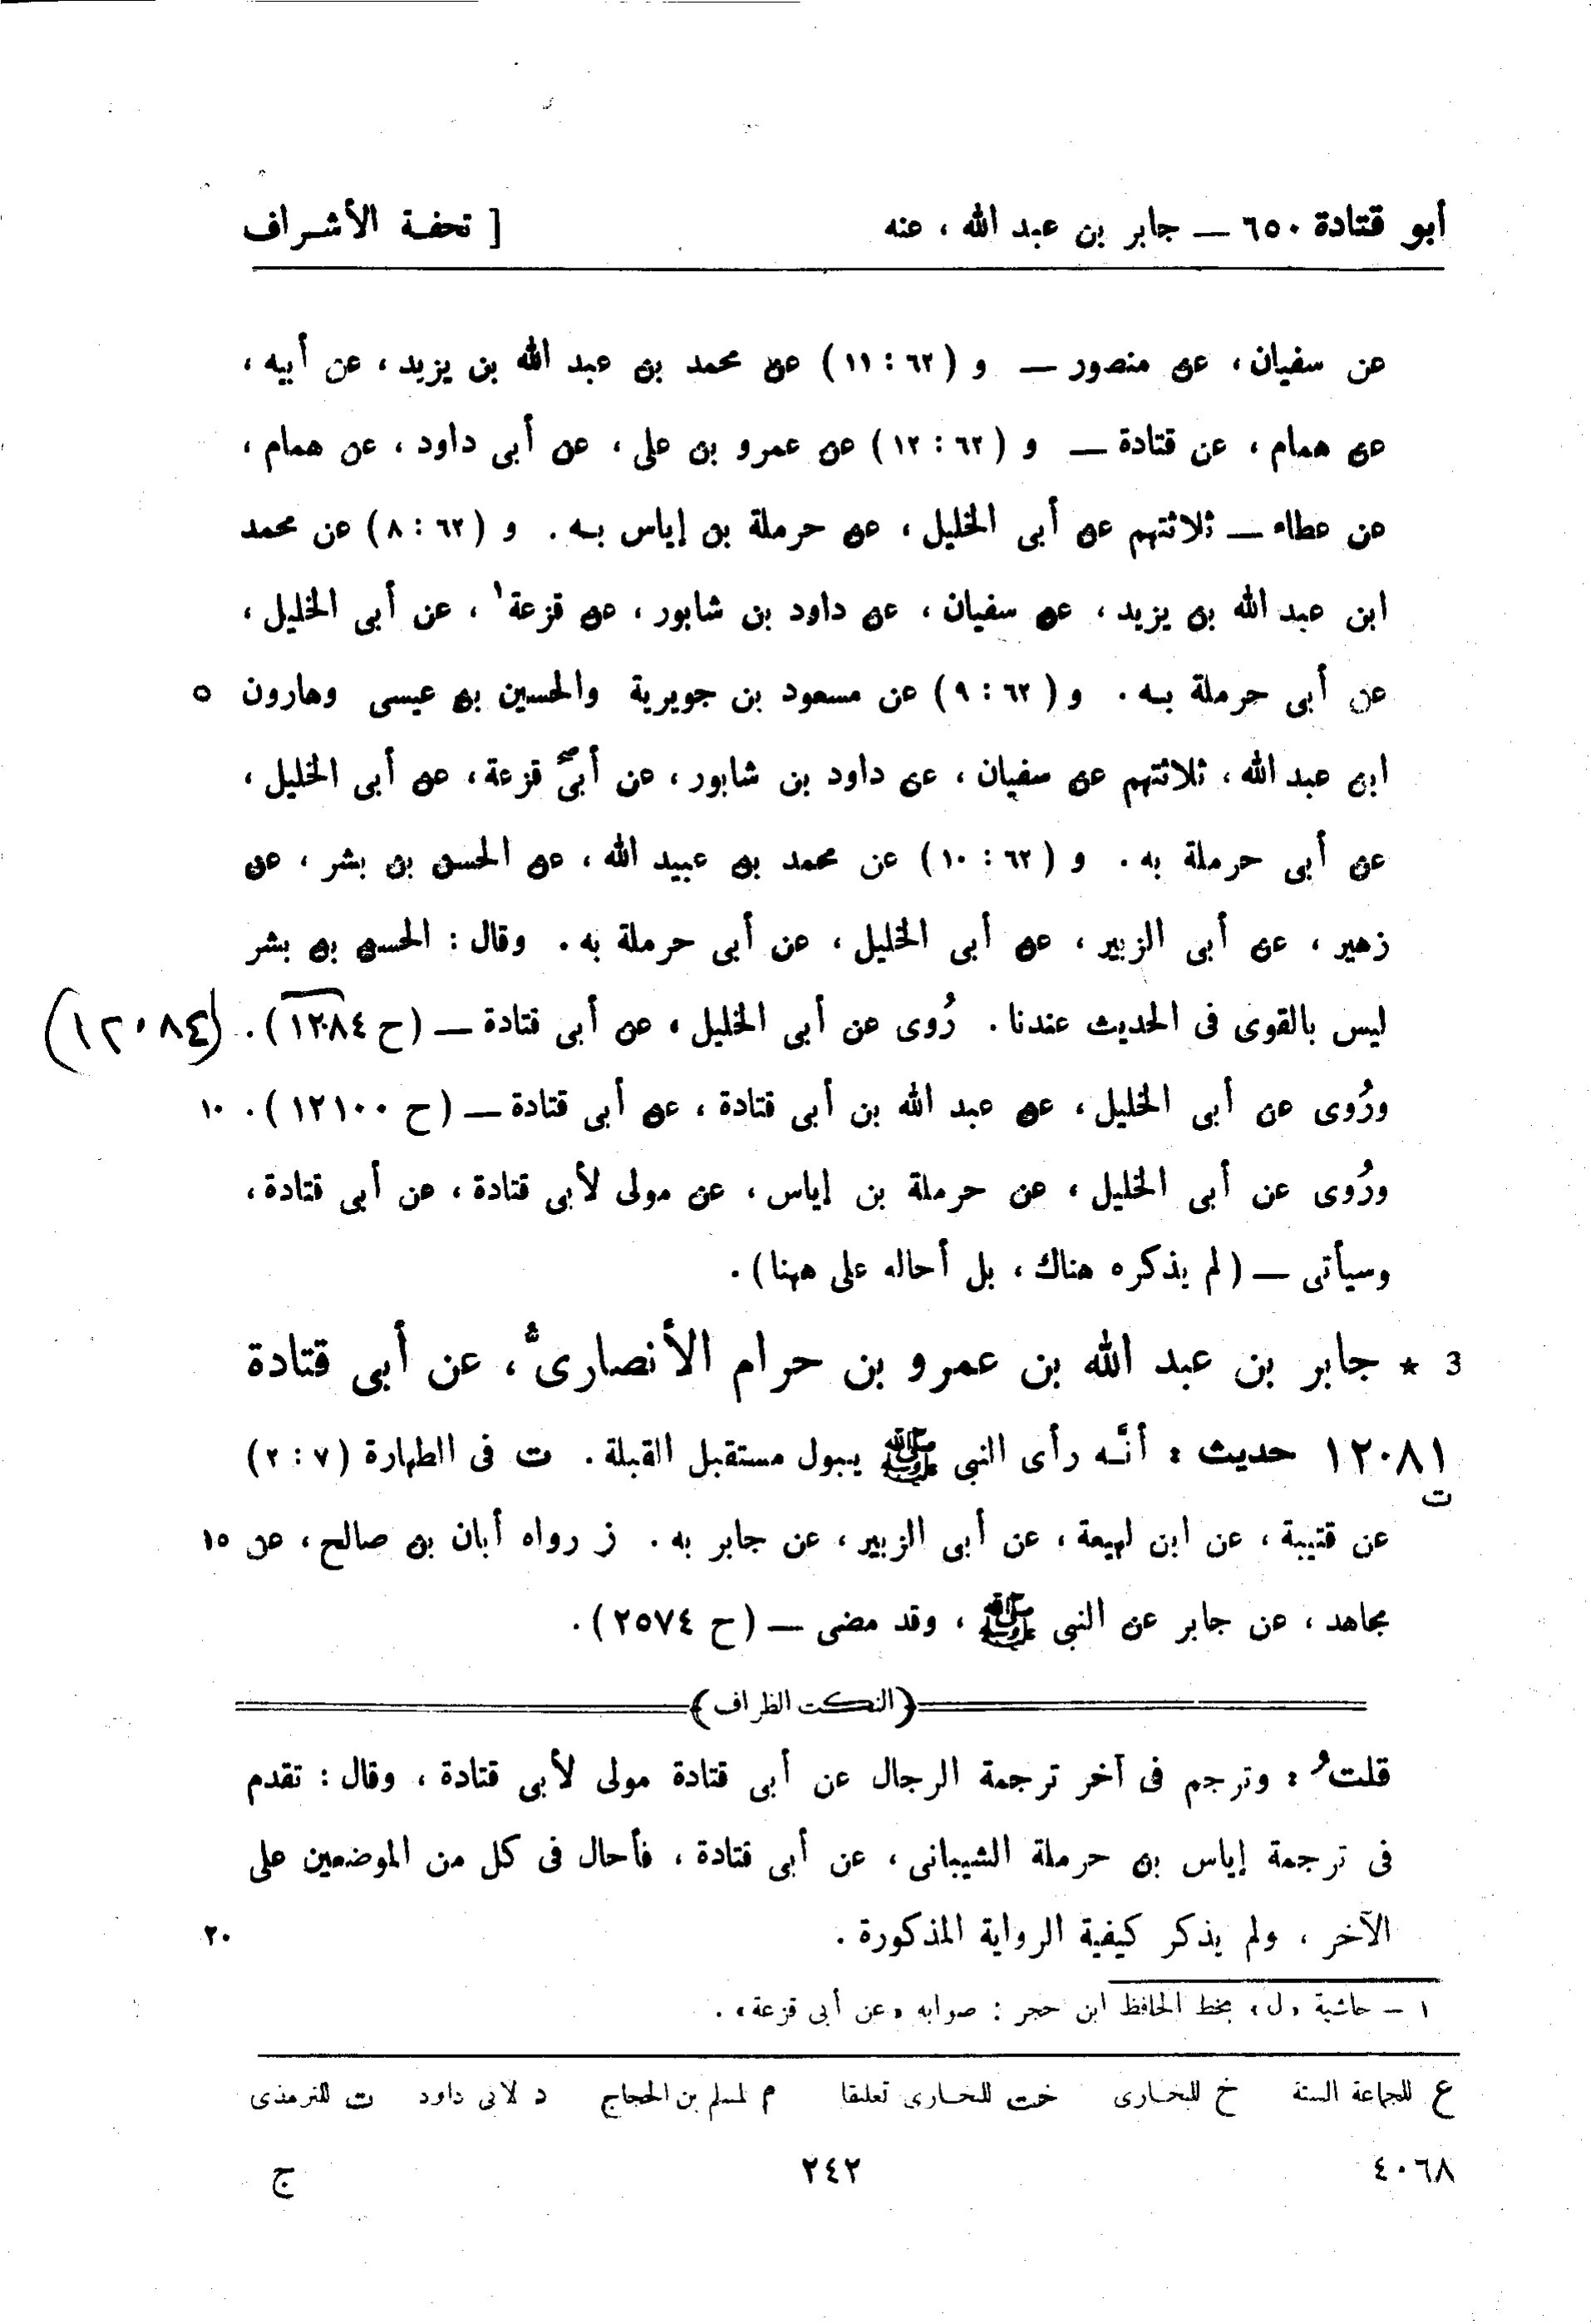 أبو قتادة ٦٥٠ — جابر بن عبد الله ، عنه [ تحفـة الأشـراف
عن سفيان، عن منصور — و (٦٢ : ١١) عن محمد بن عبد الله بن يزيد، عن أبيه ،
عن همام ، عن قتادة — و (٦٢ : ١٢) عن عمرو بن على ، عن أبى داود ، عن همام ،
عن عطاء — ثلاثتهم عن أبى الخليل ، عن حرملة بن إياس بـه . و (٦٢ : ٨) عن محمد
ابن عبد الله بن يزيد ، عن سفيان ، عن داود بن شابور ، عن قزعة١ ، عن أبى الخليل ،
عن أبى حرملة بـه . و (٦٢ : ٩) عن مسعود بن جويرية والحسين بن عيسى وهارون ٥
ابن عبد الله ، ثلاثتهم عن سفيان ، عن داود بن شابور ، عن أبىصـ قزعة ، عن أبى الخليل ،
عن أبى حرملة به . و (٦٢ : ١٠) عن محمد بن عبيد الله ، عن الحسن بن بشر ، عن
زهير ، عن أبى الزبير ، عن أبى الخليل ، عن أبى حرملة به . وقال : الحسن بن بشر
ليس بالقوى فى الحديث عندنا . رُوى عن أبى الخليل ، عن أبى قتادة — (ح ١٢٠٨٤) . (١٢٠٨٤)
ورُوى عن أبى الخليل ، عن عبد الله بن أبى قتادة ، عن أبى قتادة — (ح ١٢١٠٠) . ١٠
ورُوى عن أبى الخليل ، عن حرملة بن إياس ، عن مولى لأبى قتادة ، عن أبى قتادة ،
وسيأتى — (لم يذكره هناك ، بل أحاله على ههنا) .
3 ★ جابر بن عبد الله بن عمرو بن حرام الأنصارىُّ ، عن أبى قتادة
١٢٠٨١ حديث : أنَّـه رأى النبى ﷺ يبول مستقبل القبلة . ت فى الطهارة (٧ : ٢)
ت
عن قتيبة ، عن ابن لهيعة ، عن أبى الزبير ، عن جابر به . ز رواه أبان بن صالح ، عن ١٥
مجاهد ، عن جابر عن النبى ﷺ ، وقد مضى — (ح ٢٥٧٤) .
(النكت الظراف)
قلتُ : وترجم فى آخر ترجمة الرجال عن أبى قتادة مولى لأبى قتادة ، وقال : تقدم
فى ترجمة إياس بن حرملة الشيبانى ، عن أبى قتادة ، فأحال فى كل من الموضعين على
الآخر ، ولم يذكر كيفية الرواية المذكورة . ٢٠
١ – حاشية «ل» بخط الحافظ ابن حجر : صوابه «عن أبى قزعة» .
ع للجماعة الستة خ للبخـارى خت للبخـارى تعليقا م لمسلم بن الحجاج د لأبى داود ت للترمذى
٤٠٦٨ ٢٤٢ ج